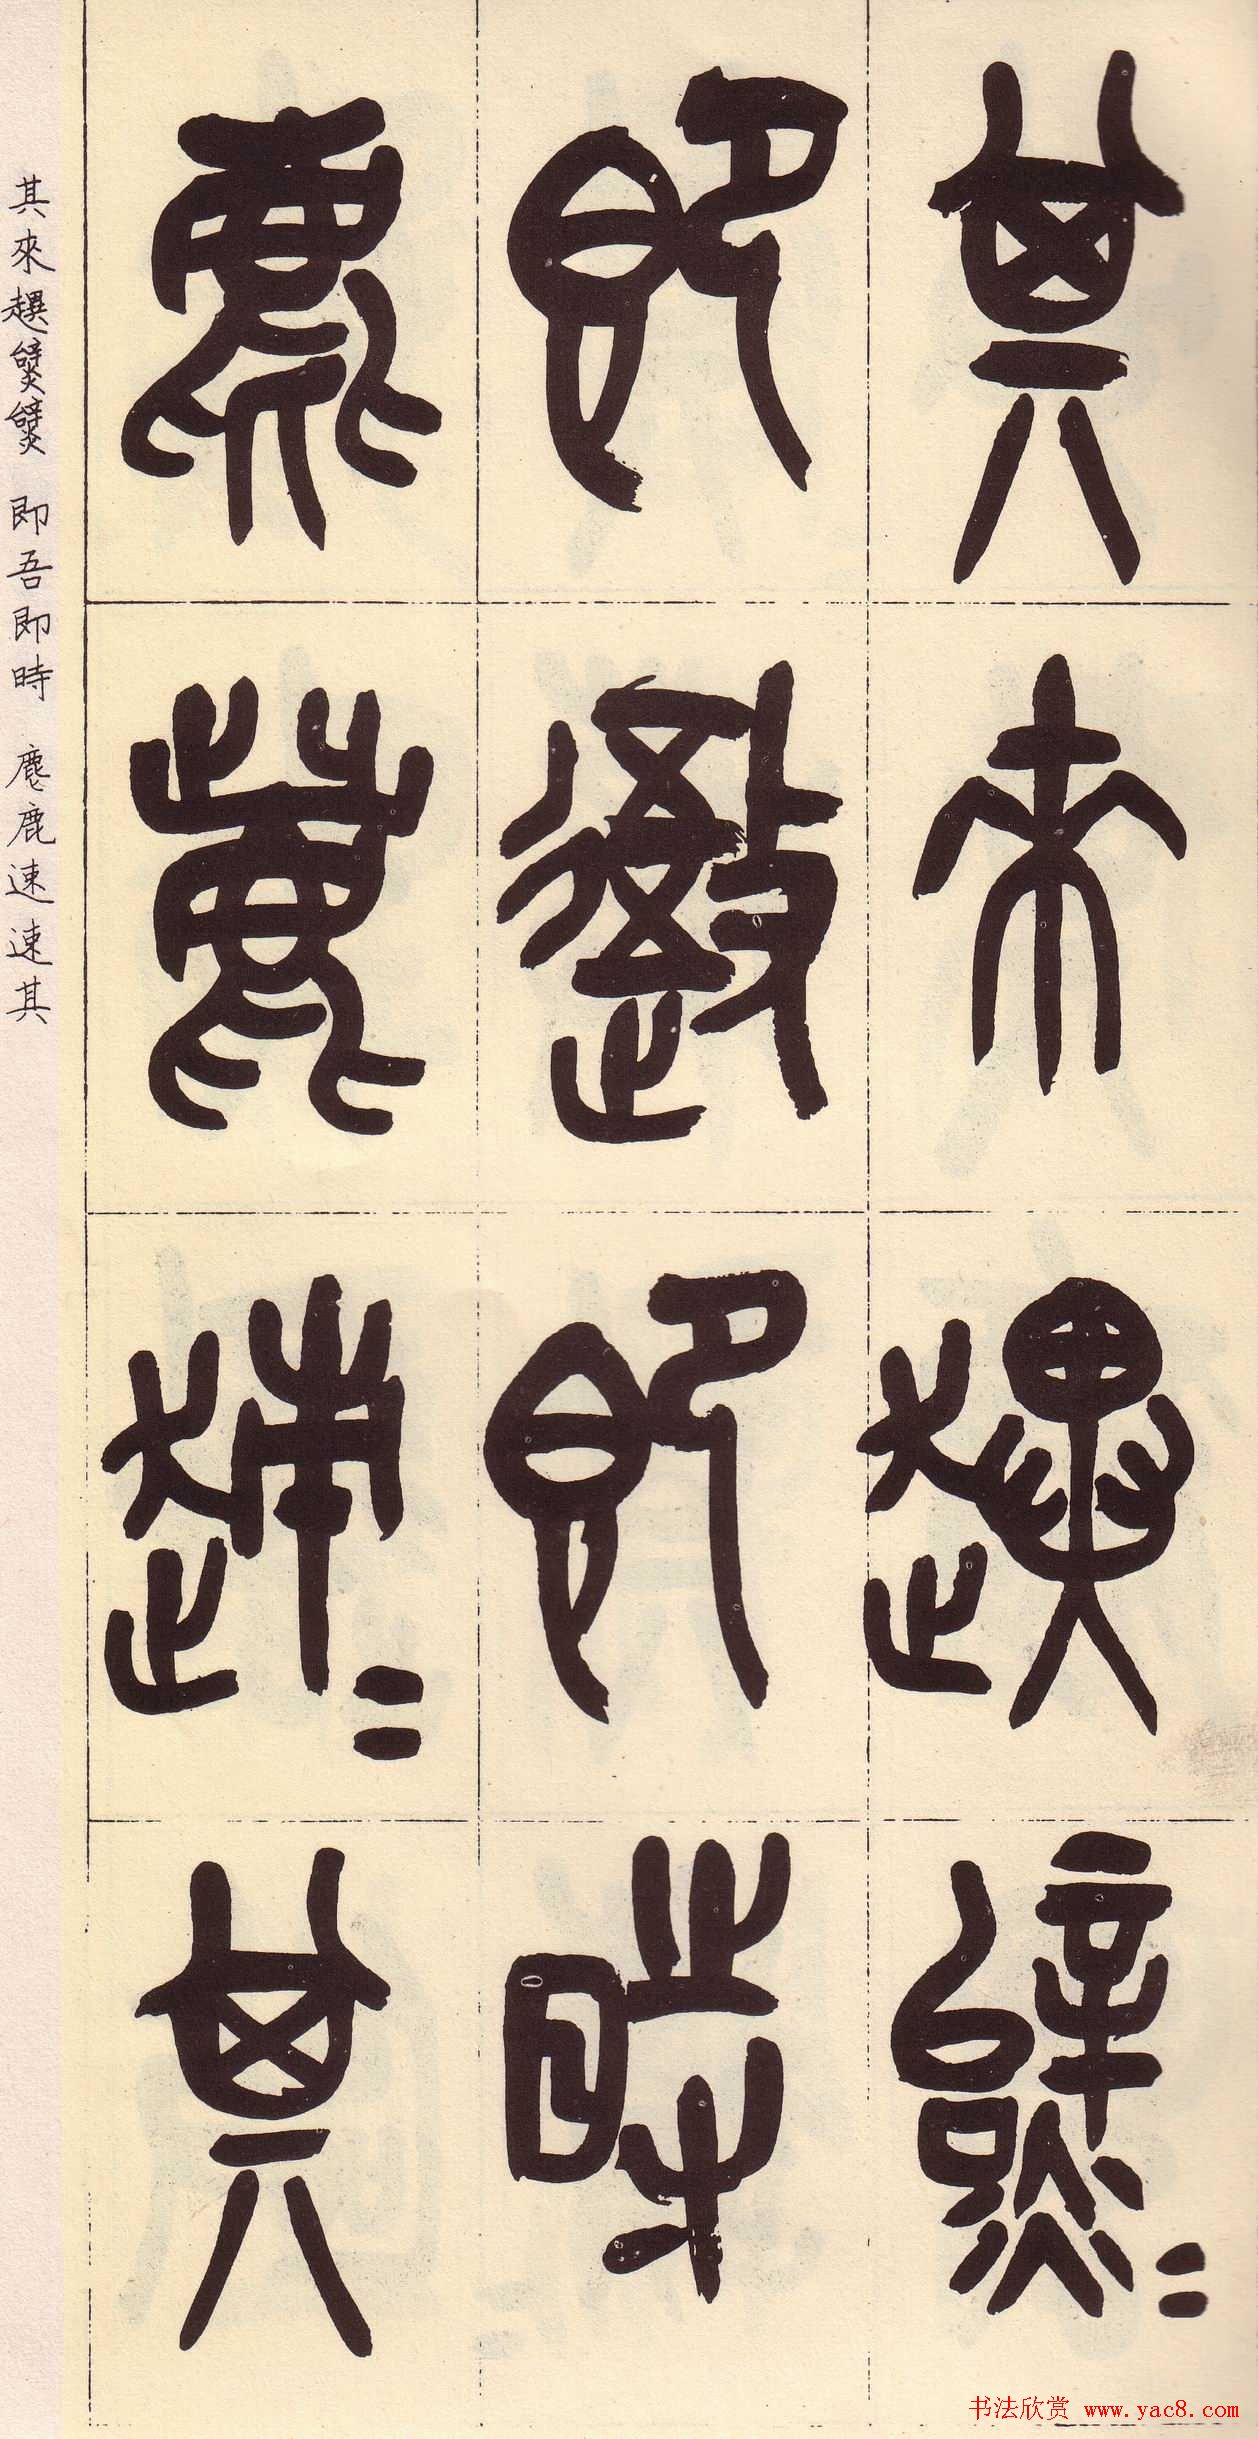 其來趩𤑔𤑔
即𢓜即時
麀鹿速速其
其來趩𤑔𤑔 即吾即時 麀鹿速速其
书法欣赏 www.yac8.com